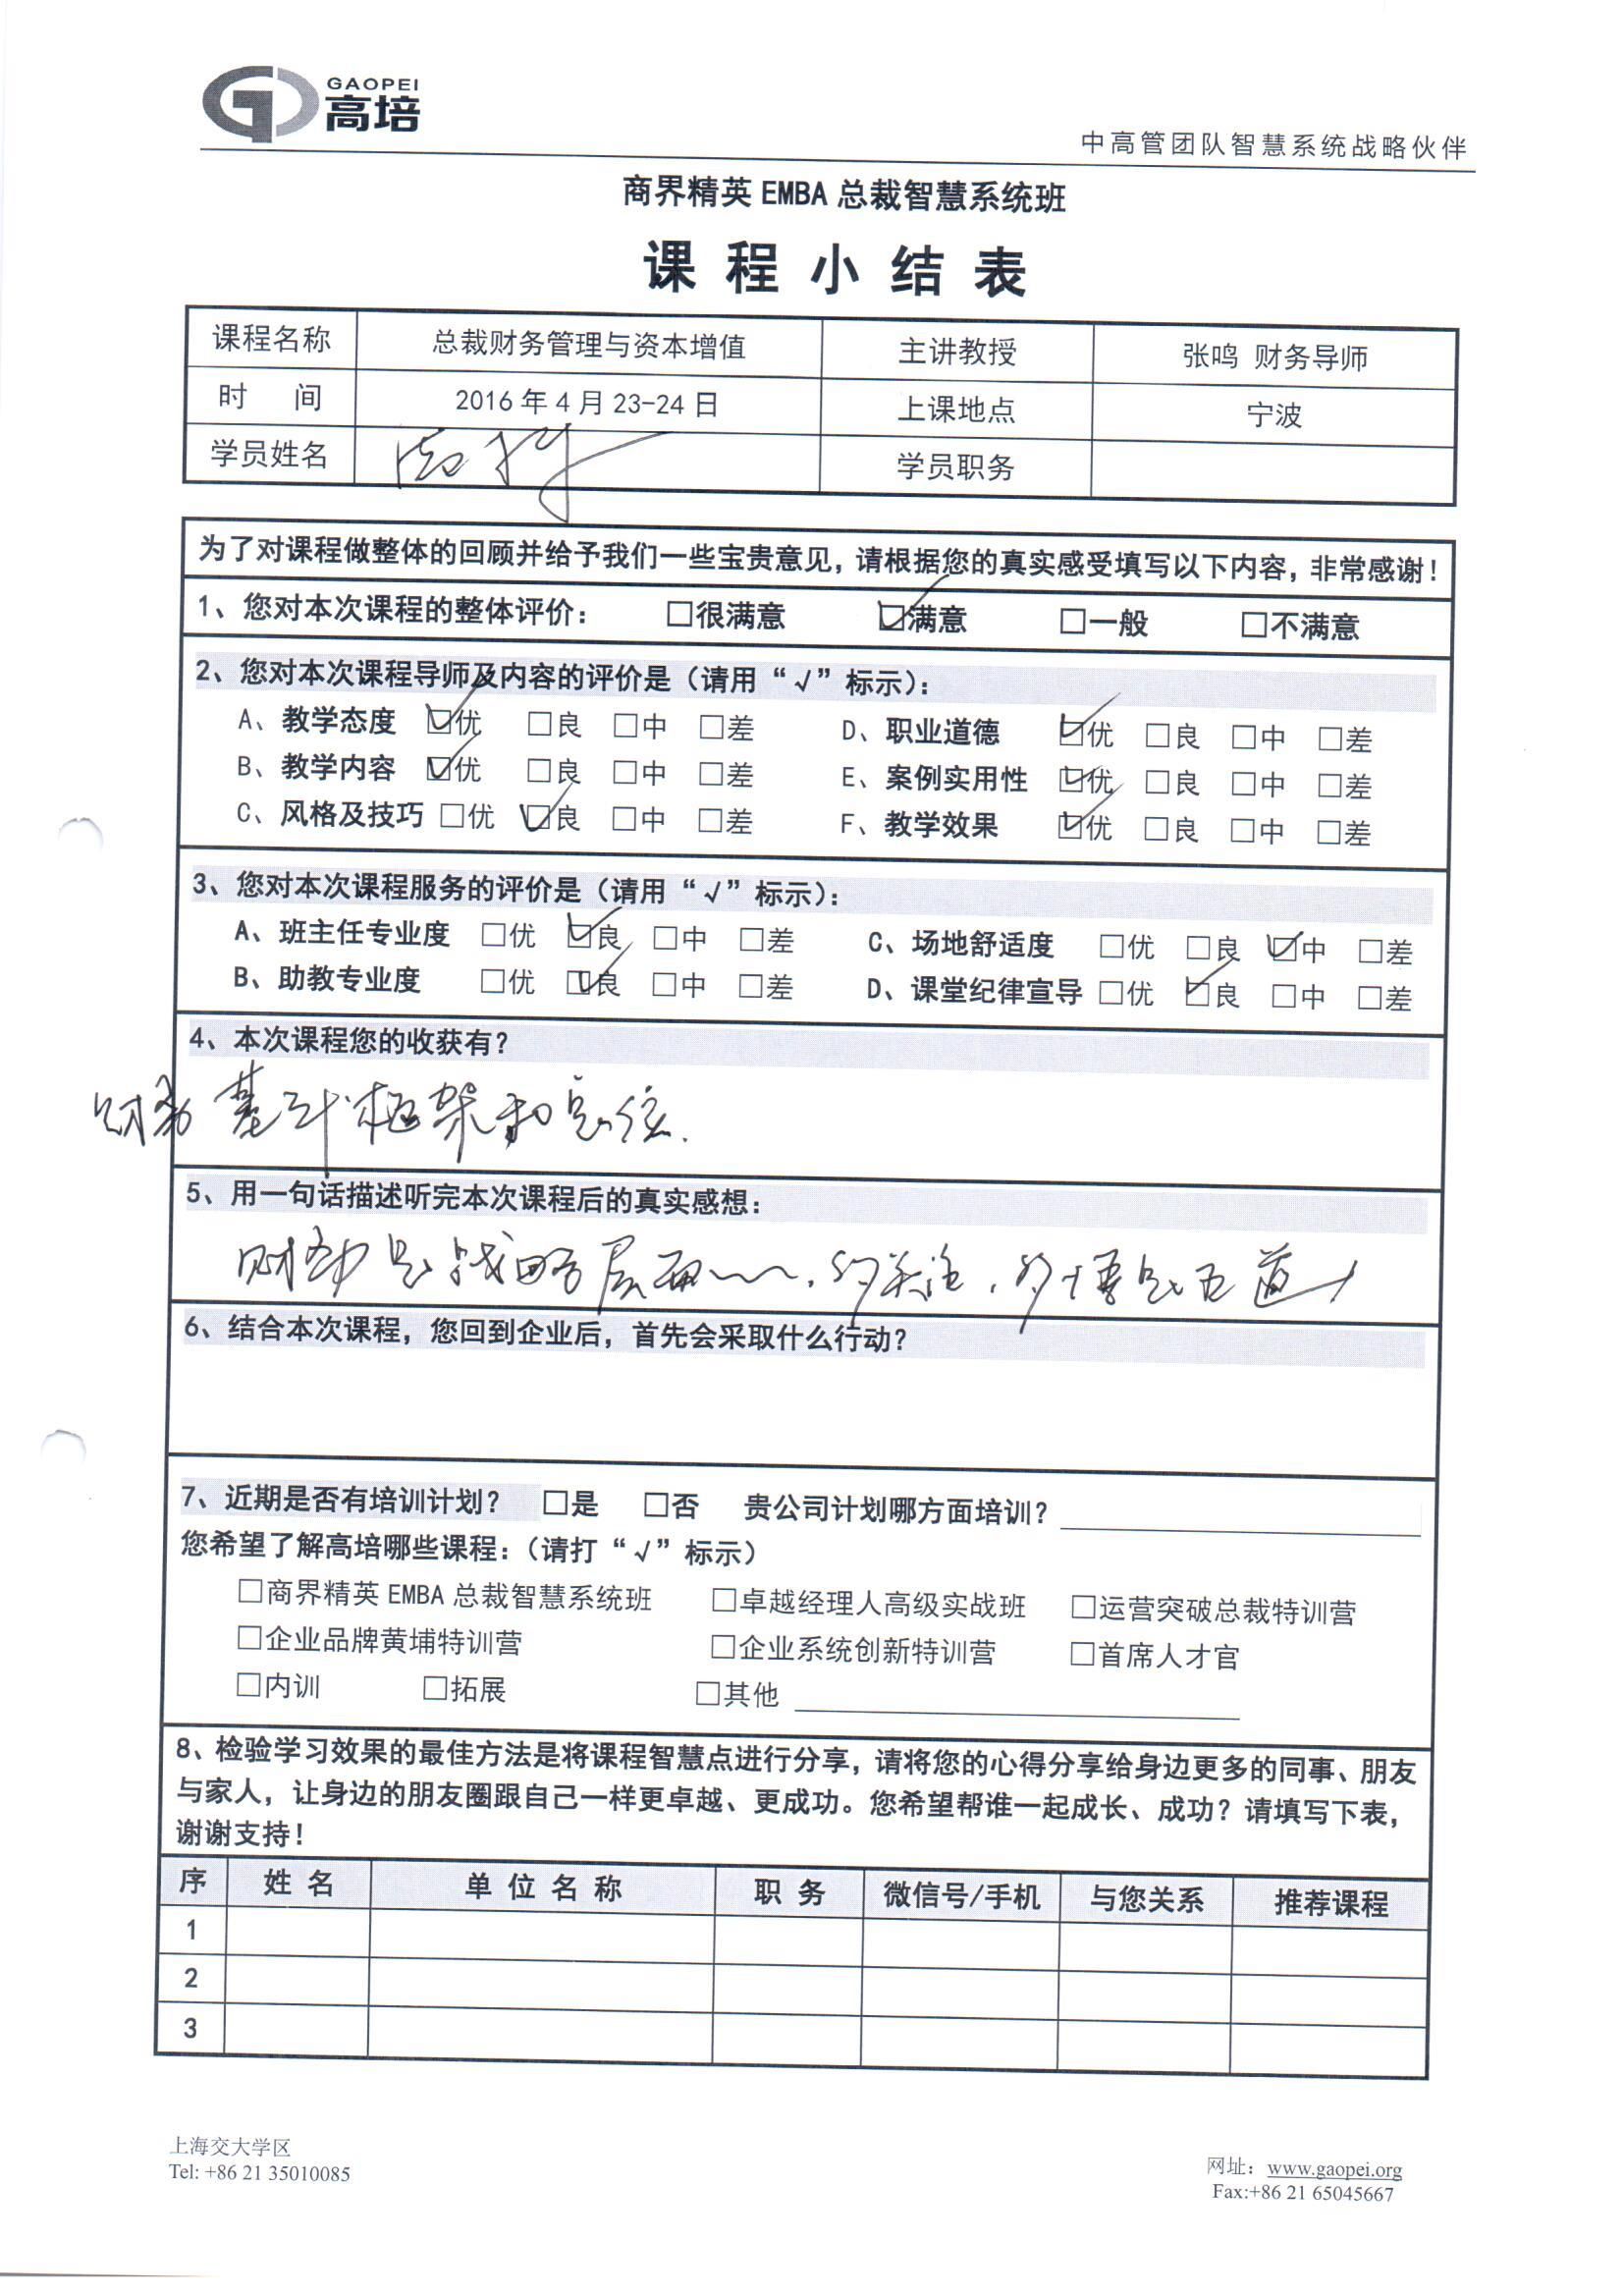 GAOPEI
高培
中高管团队智慧系统战略伙伴
商界精英 EMBA 总裁智慧系统班
课程小结表
课程名称 总裁财务管理与资本增值 主讲教授 张鸣 财务导师
时 间 2016年4月23-24日 上课地点 宁波
学员姓名 学员职务
为了对课程做整体的回顾并给予我们一些宝贵意见，请根据您的真实感受填写以下内容，非常感谢！
1、您对本次课程的整体评价： □很满意 ☑满意 □一般 □不满意
2、您对本次课程导师及内容的评价是（请用“√”标示）：
A、教学态度 ☑优 □良 □中 □差 D、职业道德 ☑优 □良 □中 □差
B、教学内容 ☑优 □良 □中 □差 E、案例实用性 ☑优 □良 □中 □差
C、风格及技巧 □优 ☑良 □中 □差 F、教学效果 ☑优 □良 □中 □差
3、您对本次课程服务的评价是（请用“√”标示）：
A、班主任专业度 □优 ☑良 □中 □差 C、场地舒适度 □优 □良 ☑中 □差
B、助教专业度 □优 ☑良 □中 □差 D、课堂纪律宣导 □优 ☑良 □中 □差
4、本次课程您的收获有？
财务基础框架和
5、用一句话描述听完本次课程后的真实感想：
财务是战略层面
6、结合本次课程，您回到企业后，首先会采取什么行动？
7、近期是否有培训计划？ □是 □否 贵公司计划哪方面培训？
您希望了解高培哪些课程：（请打“√”标示）
□商界精英 EMBA 总裁智慧系统班 □卓越经理人高级实战班 □运营突破总裁特训营
□企业品牌黄埔特训营 □企业系统创新特训营 □首席人才官
□内训 □拓展 □其他
8、检验学习效果的最佳方法是将课程智慧点进行分享，请将您的心得分享给身边更多的同事、朋友
与家人，让身边的朋友圈跟自己一样更卓越、更成功。您希望帮谁一起成长、成功？请填写下表，
谢谢支持！
序 姓名 单位名称 职务 微信号/手机 与您关系 推荐课程
1
2
3
上海交大学区
Tel: +86 21 35010085
网址：www.gaopei.org
Fax:+86 21 65045667